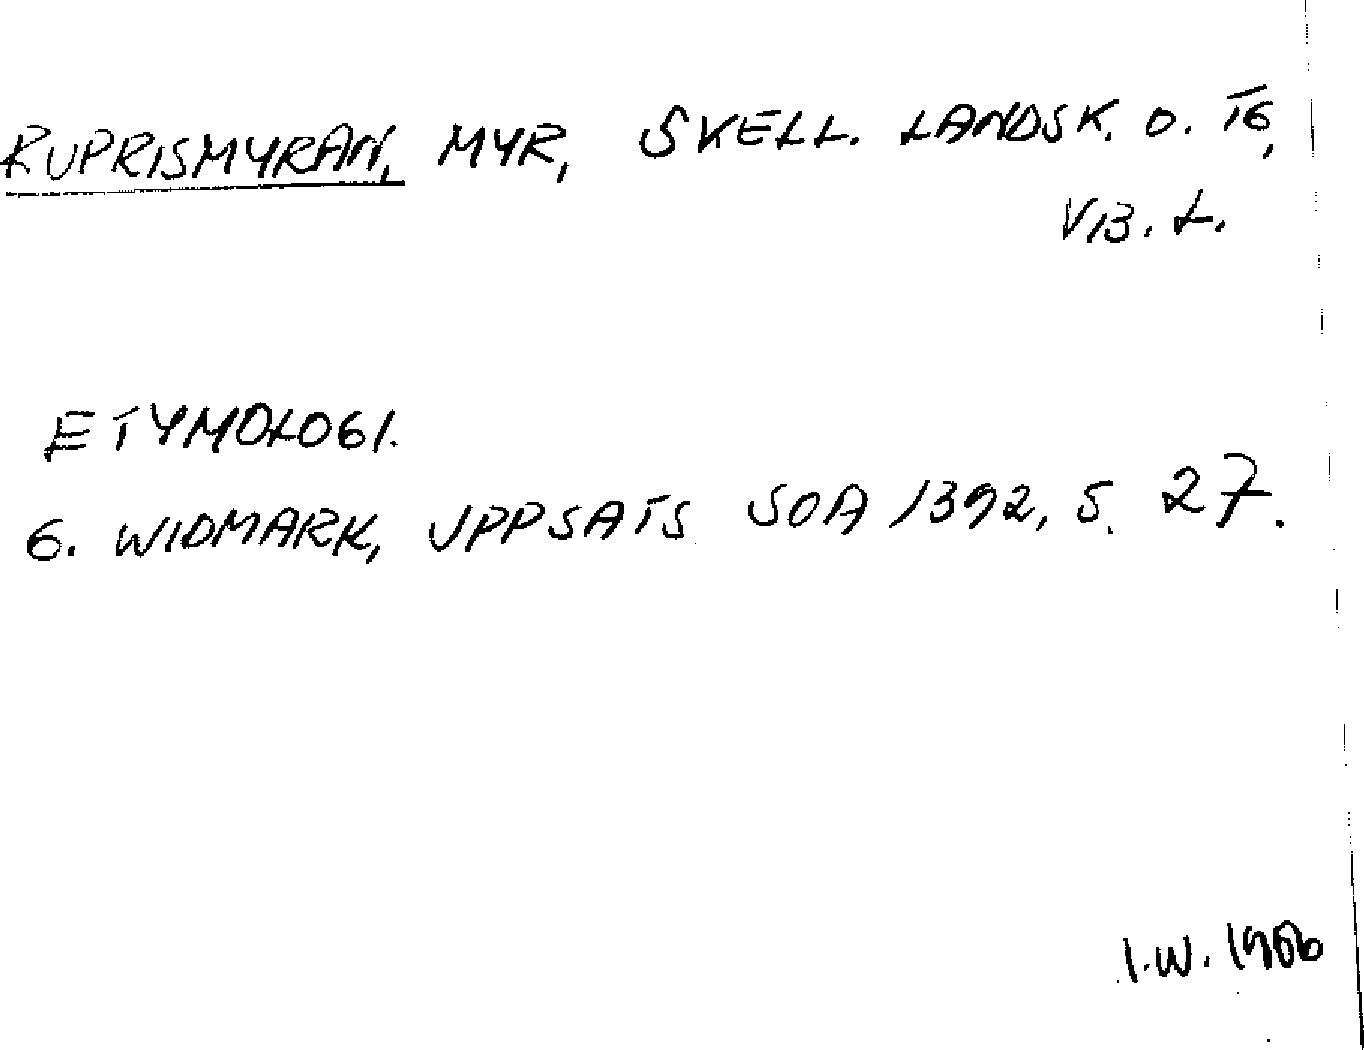 RUPRISMYRAN, MYR, SKELL. LANDSK. O. TG,
VB. L.
ETYMOLOGI.
G. WIDMARK, UPPSATS SOA 1392, S. 27.
I.W. 1986